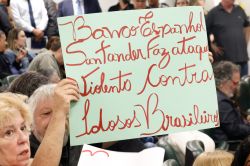 Banco Espanhol
Santander Faz ataque
Violento Contra
Idosos Brasileiro